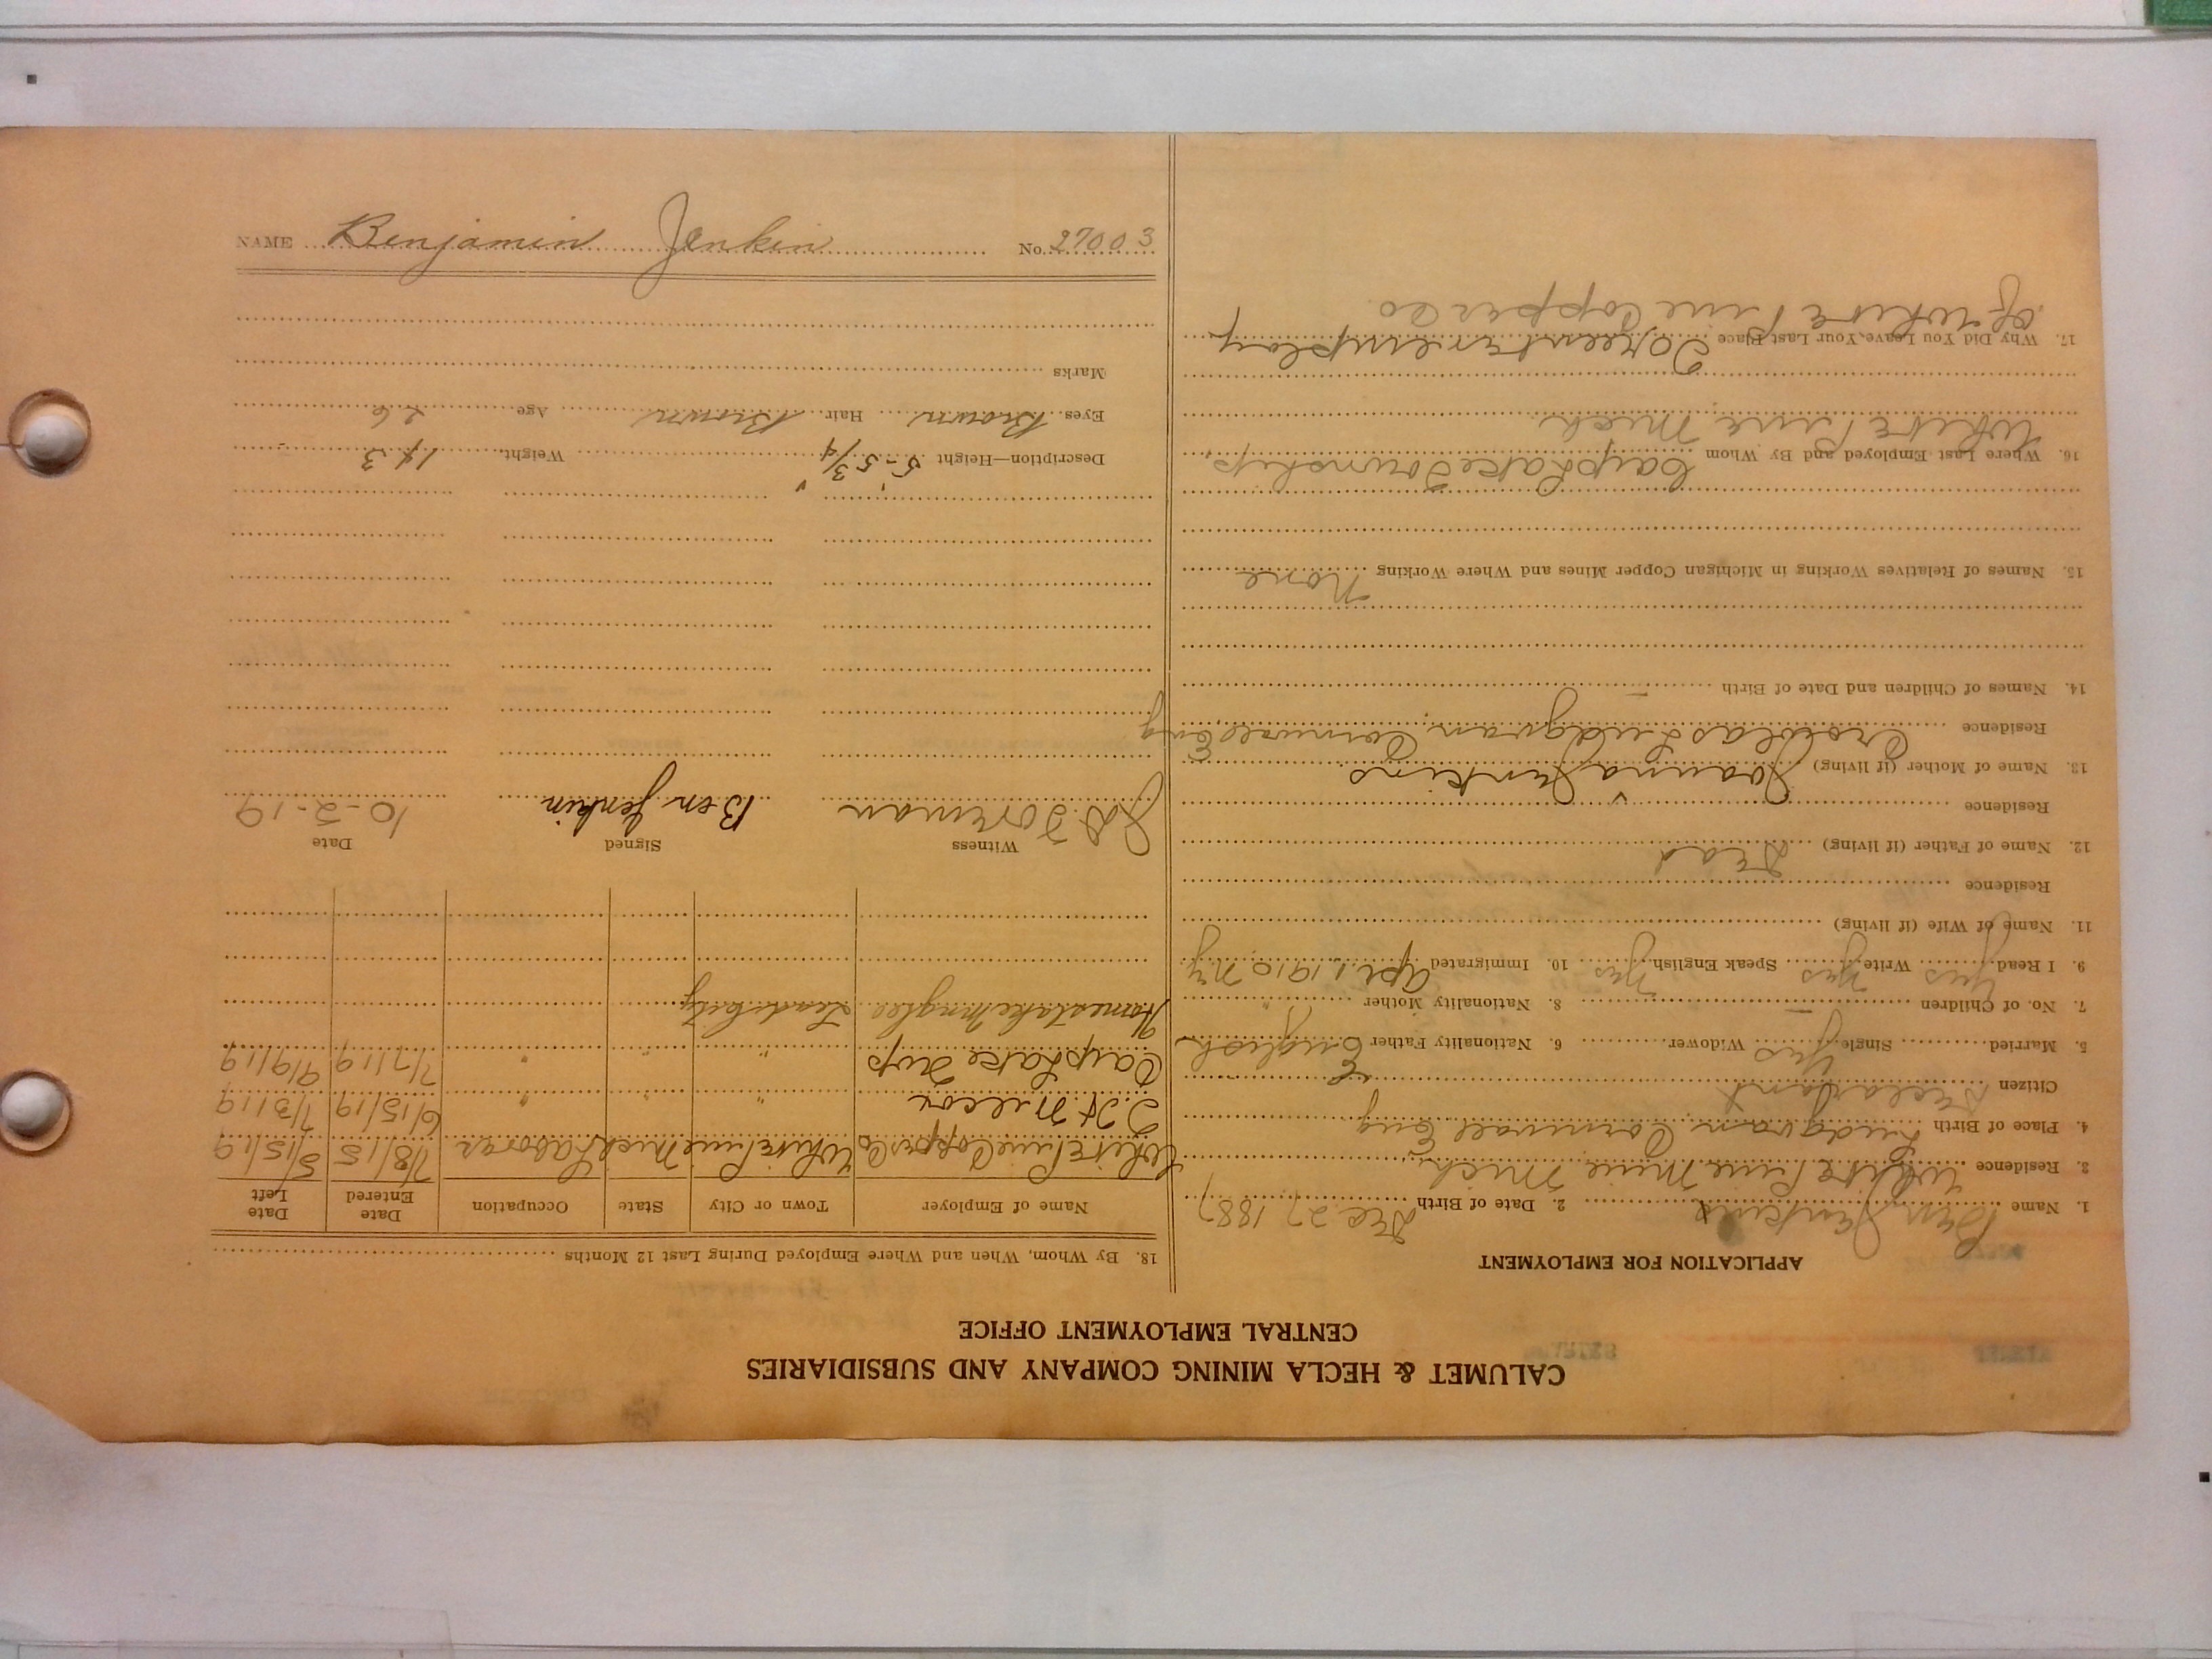 CALUMET & HECLA MINING COMPANY AND SUBSIDIARIES
CENTRAL EMPLOYMENT OFFICE
APPLICATION FOR EMPLOYMENT
1. Name Ben Jenkins 2. Date of Birth Dec 27 1887
3. Residence White Pine Mine Mich.
4. Place of Birth Ludgvan Cornwall Eng
Citizen Declarant
5. Married Single Yes Widower 6. Nationality Father English
7. No. of Children — 8. Nationality Mother "
9. I Read Yes Write Yes Speak English Yes 10. Immigrated Apl. 1 1910 N.Y.
11. Name of Wife (if living)
Residence
12. Name of Father (if living) Dead
Residence
13. Name of Mother (if living) Joanna Jenkins
Residence Crowlas Ludgvan, Cornwall Eng
14. Names of Children and Date of Birth —
15. Names of Relatives Working in Michigan Copper Mines and Where Working None
16. Where Last Employed and By Whom Carp Lake Township,
White Pine Mich.
17. Why Did You Leave Your Last Place To reenter employ
of White Pine Copper Co
18. By Whom, When and Where Employed During Last 12 Months
Name of Employer Town or City State Occupation Date Entered Date Left
White Pine Copper Co White Pine Mich Laborer 7/8/15 5/15/19
T. H. Wilcox " " " 6/15/19 7/3/19
Carp Lake Twp " " " 7/7/19 9/9/19
Homestake Lead City
Witness Signed Date
Foreman Ben Jenkin 10-2-19
Description—Height 5-5 3/4 Weight 143
Eyes Brown Hair Brown Age 26
Marks
NAME Benjamin Jenkin No. 27003